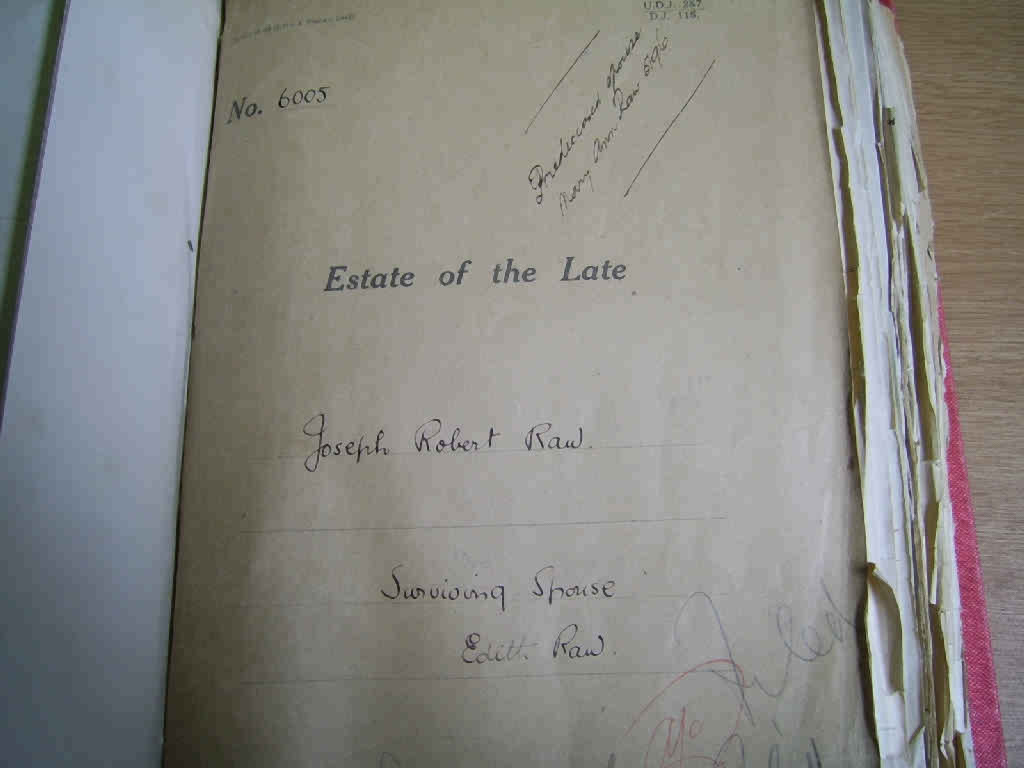 U.D.J. 287.
D.J. 118.
No. 6005
Predeceased spouse
Mary Ann Raw
Estate of the Late
Joseph Robert Raw.
Surviving Spouse
Edith Raw.
Filed